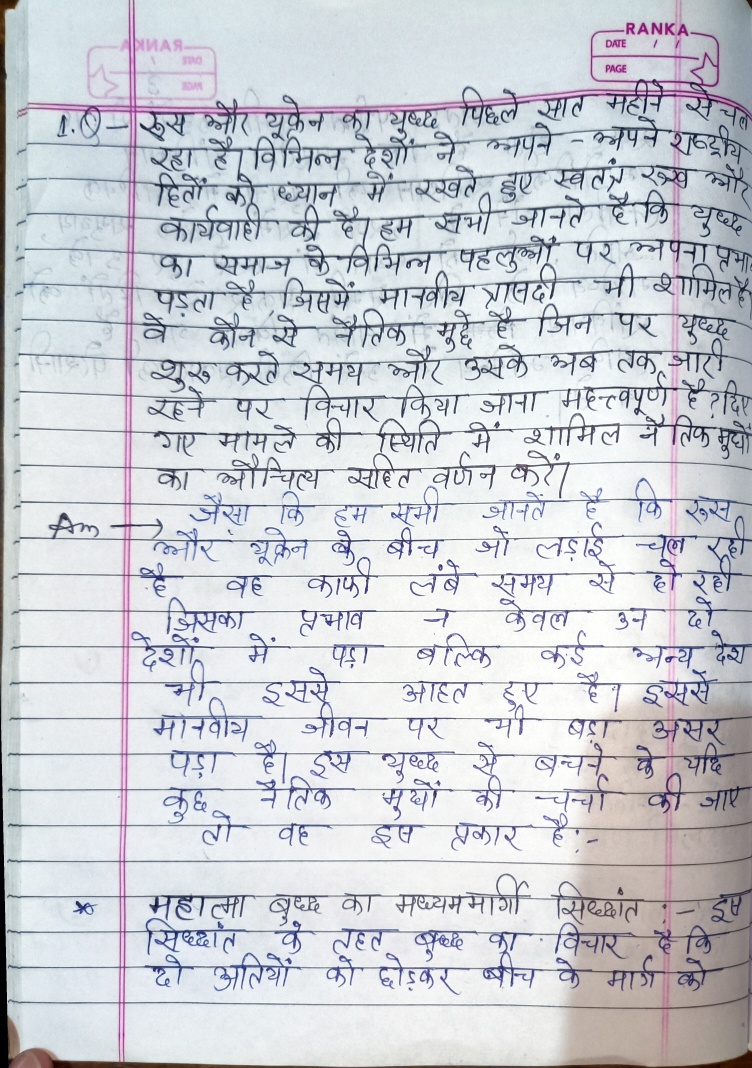 RANKA
DATE / /
PAGE
1.Q - रूस और यूक्रेन का युध्द पिछले सात महीने से चल
रहा है। विभिन्न देशों ने अपने - अपने राष्ट्रीय
हितों को ध्यान में रखते हुए स्वतंत्र रूख और
कार्यवाही की है। हम सभी जानते है कि युध्द
का समाज के विभिन्न पहलुओं पर अपना प्रभा
पड़ता है, जिसमें मानवीय त्रासदी भी शामिल है
वे कौन से नैतिक मुद्दे है जिन पर युध्द
शुरू करते समय और उसके अब तक जारी
रहने पर विचार किया जाना महत्त्वपूर्ण है? दिए
गए मामले की स्थिति में शामिल नैतिक मुद्यों
का औचित्य सहित वर्णन करें।
Ans → जैसा कि हम सभी जानतें है कि रूस
और यूक्रेन के बीच जो लड़ाई चल रही
है वह काफी लंबे समय से हो रही
जिसका प्रभाव न केवल उन दो
देशों में पड़ा बल्कि कई अन्य देश
भी इससे आहत हुए है। इससे
मानवीय जीवन पर भी बड़ा असर
पड़ा है। इस युध्द से बचने के यदि
कुछ नैतिक मुद्यों की चर्चा की जाए
तो वह इस प्रकार है:-
* महात्मा बुध्द का मध्यममार्गी सिध्दांत :- इस
सिध्दांत के तहत बुध्द का विचार है कि
दो अतियों को छोड़कर बीच के मार्ग को